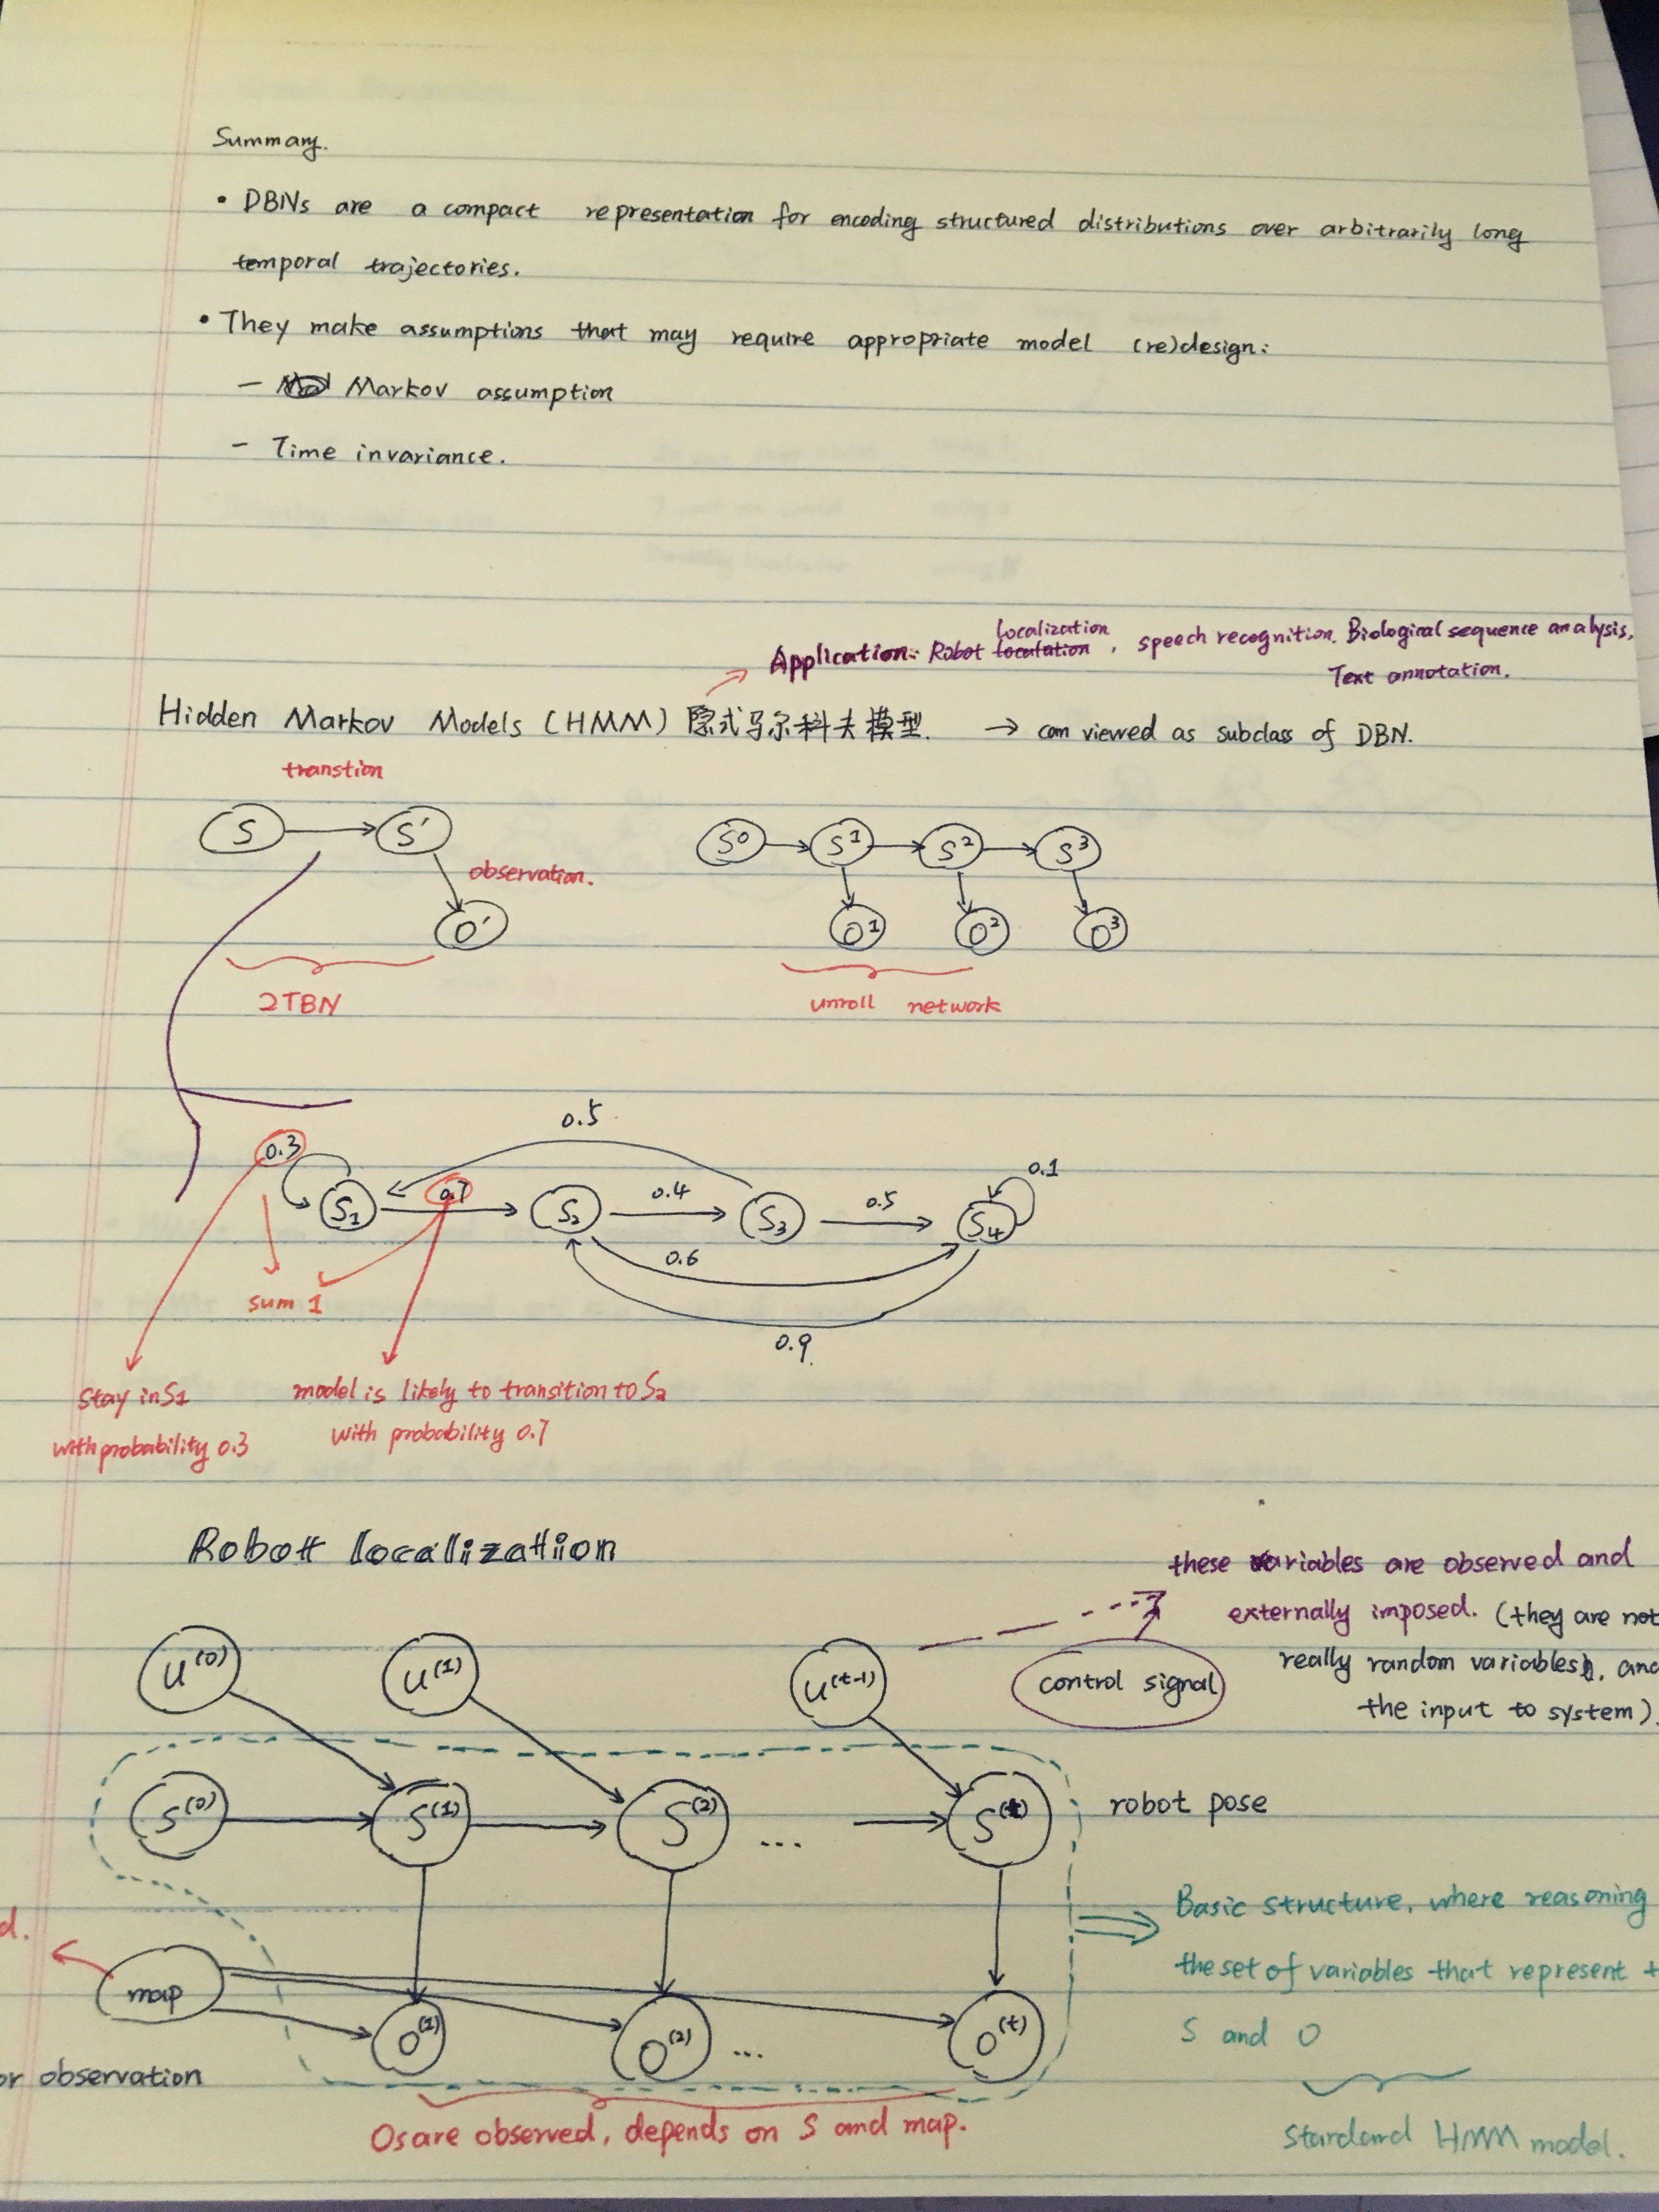 Summary.
• DBNs are a compact representation for encoding structured distributions over arbitrarily long
temporal trajectories.
• They make assumptions that may require appropriate model (re)design:
– Markov assumption
– Time invariance.
localization
Application: Robot locatation, speech recognition. Biological sequence analysis,
Text annotation.
Hidden Markov Models (HMM) 隐式马尔科夫模型. → can viewed as subclass of DBN.
transtion
S S' S⁰ S¹ S² S³
observation.
O' O¹ O² O³
2TBN unroll network
0.5
0.3 0.7 0.4 0.5 0.1
S₁ S₂ S₃ S₄
0.6
sum 1
0.9.
Stay in S1
with probability 0.3
model is likely to transition to S₂
with probability 0.7
Robott localization
these variables are observed and
externally imposed. (they are not
really random variables), and
the input to system).
u⁽⁰⁾ u⁽¹⁾ u⁽ᵗ⁻¹⁾ control signal
S⁽⁰⁾ S⁽¹⁾ S⁽²⁾ ... S⁽ᵗ⁾ robot pose
Basic structure, where reasoning
the set of variables that represent
S and O
d.
map
O⁽¹⁾ O⁽²⁾ ... O⁽ᵗ⁾
or observation
Os are observed, depends on S and map.
Standard HMM model.